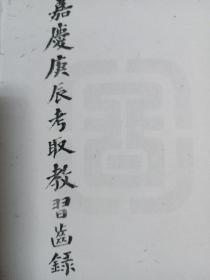 嘉慶庚辰考取教習齒錄